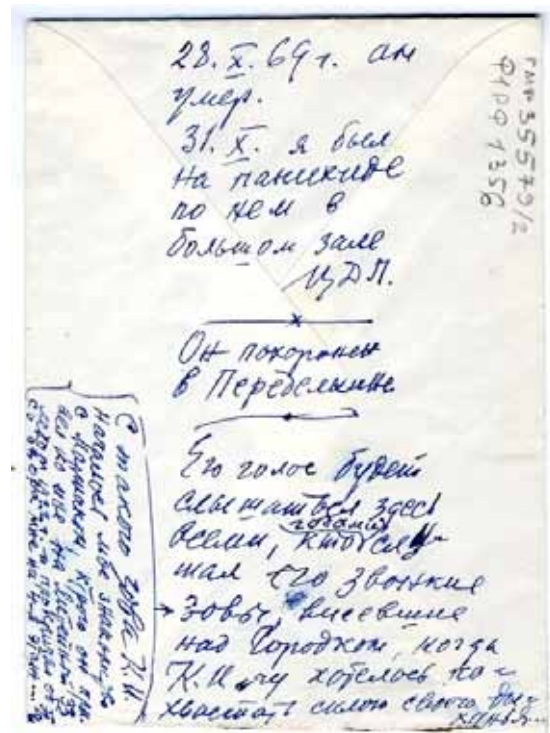 28.X.69 г. он
умер.
31.X. я был
на панихиде
по нем в
большом зале
ЦДЛ.
Он похоронен
в Переделкине
Его голос будет
слышаться здесь
всеми, кто слы-
шал его звонкие
зовы, висевшие
над Городком, когда
К.И-чу хотелось по-
хвастать силою своего ды-
ханья...
С такого зова К.И.
началось мое знакомство
с Маршаком, которого он
ко мне на
ГМП 35579/2
ФИРФ 1356